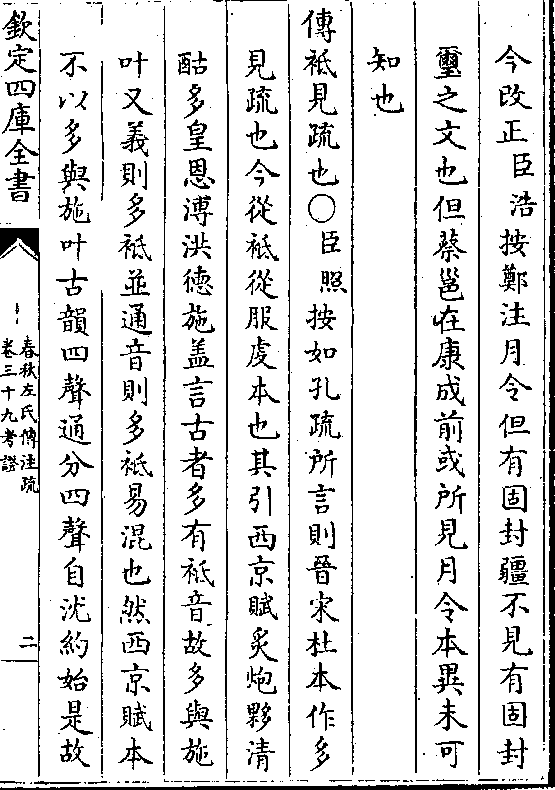 今改正臣浩按鄭注月令但有固封疆不見有固封
璽之文也但蔡邕在康成前或所見月令本異未可
知也
傳祇見疏也○臣照按如孔疏所言則晉宋杜本作多
見疏也今從祇從服虔本也其引西京賦炙炮夥清
酤多皇恩溥洪德施盖言古者多有祇音故多與施
叶又義則多祇並通音則多祇易混也然西京賦本
不以多與施叶古韻四聲通分四聲自沈約始是故
欽定四庫全書
春秋左氏傳注疏
卷三十九考證
二